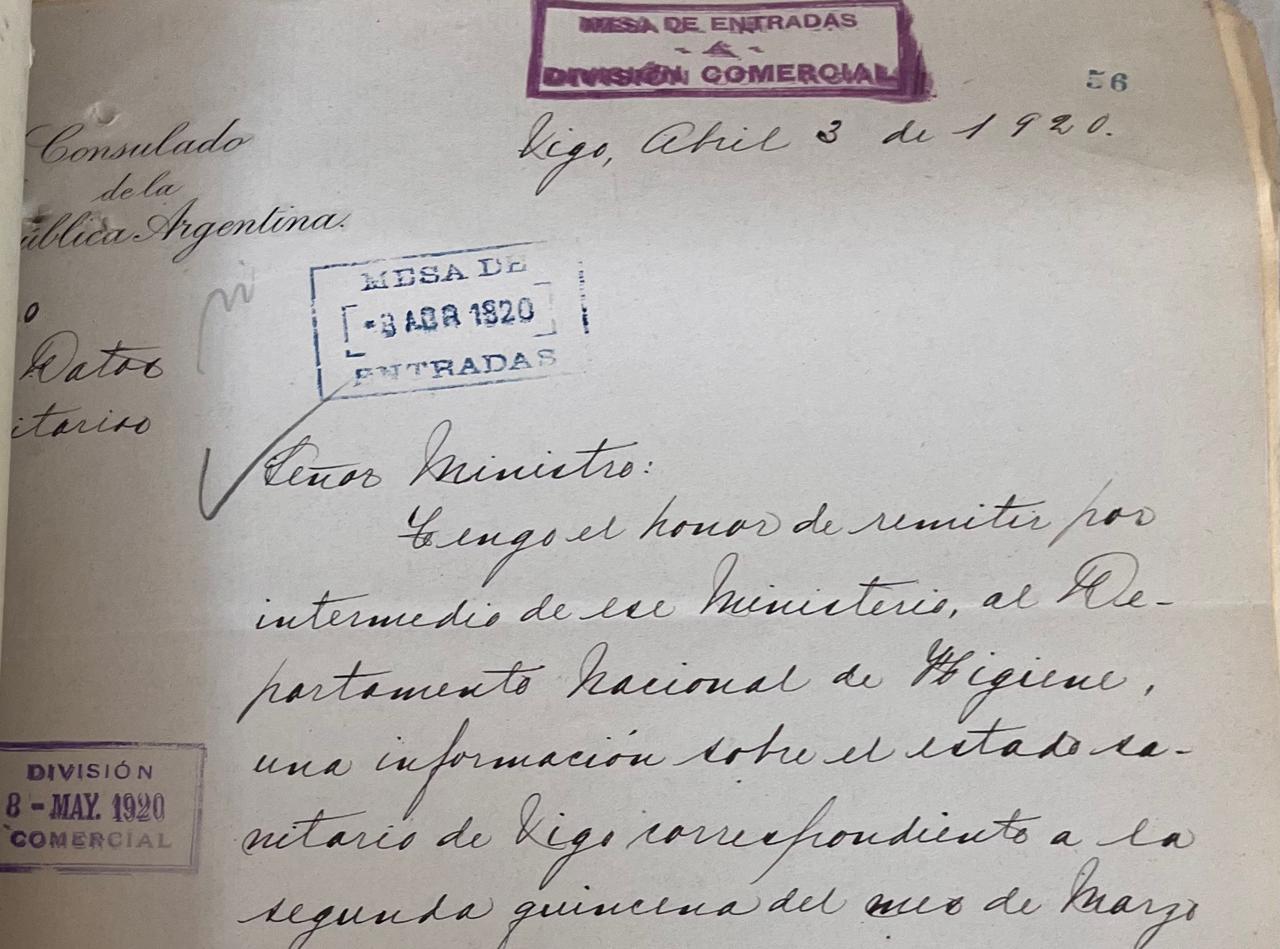 MESA DE ENTRADAS
- A -
DIVISIÓN COMERCIAL
56
Vigo, Abril 3 de 1920.
Consulado
de la
ública Argentina.
MESA DE
-8 ABR 1920
ENTRADAS
o
Datos
itarios
Señor Ministro:
Tengo el honor de remitir por
intermedio de ese Ministerio, al De-
partamento Nacional de Higiene,
una información sobre el estado sa-
nitario de Vigo correspondiente a la
segunda quincena del mes de Marzo
DIVISIÓN
8 - MAY. 1920
COMERCIAL